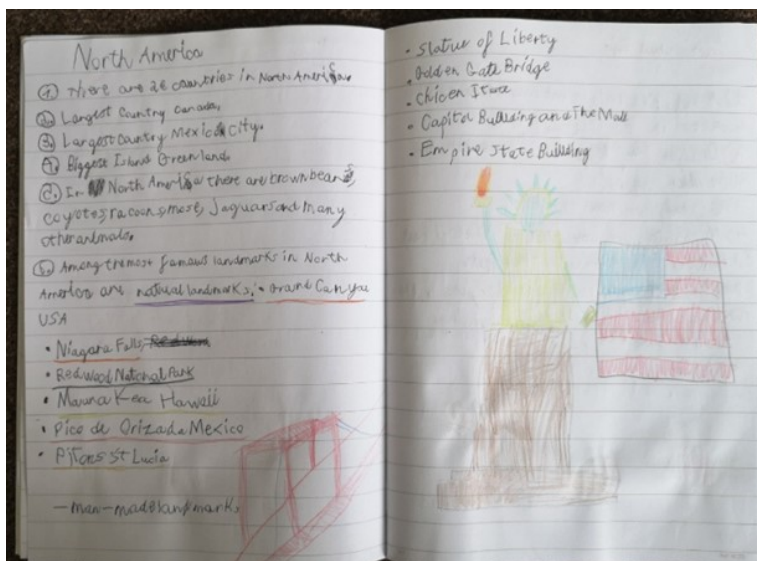 North America
1. There are 26 countries in North America.
2. Largest Country Canada.
3. Largest Country Mexico City.
4. Biggest Island Greenland.
In North America there are brown bears,
coyotes, racoons, mose, Jaguars and many
other animals.
Among the most famous landmarks in North
America are natural landmarks, • Grand Canyou
USA
• Niagara Falls,
• Redwood National Park
• Mauna Kea Hawaii
• Pico de Orizada Mexico
• Pitons St Lucia
-man-made landmarks
• Statue of Liberty
• Golden Gate Bridge
• Chicen Itwa
• Capitol Building and The Mall
• Empire State Building